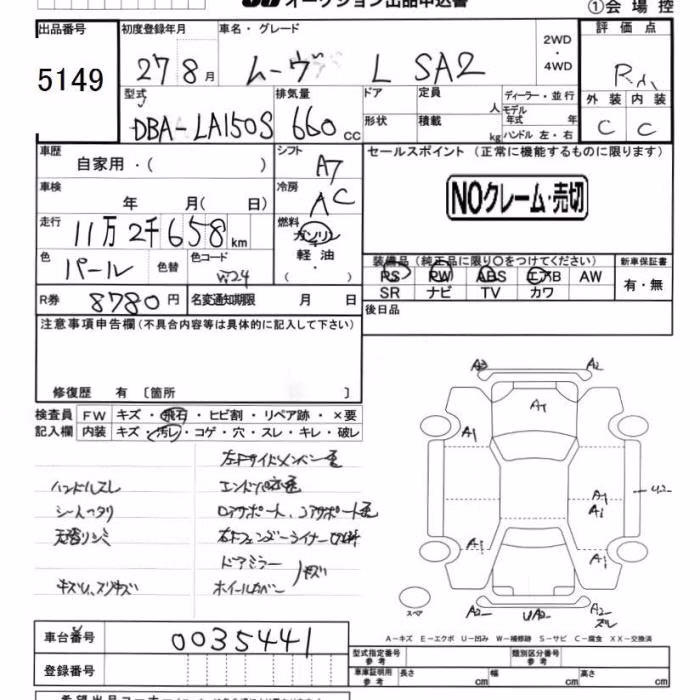 オークション出品申込書
①会場控
出品番号
5149
初度登録年月
27年8月
車名・グレード
ムーヴ L SA2
2WD
・
4WD
評価点
外装 内装
C C
型式
DBA-LA150S
排気量
660 cc
ドア
定員
人
ディーラー・並行
モデル年式 年
形状
積載
kg
ハンドル 左・右
車歴
自家用・( )
シフト
A7
セールスポイント (正常に機能するものに限ります)
NOクレーム・売切
車検
年 月( 日)
冷房
AC
走行
11万2千658km
燃料
ガソリン
軽油
( ・ )
色
パール
色替
色コード
W24
装備品 (純正品に限り〇をつけてください)
PS PW ABS エアB AW
SR ナビ TV カワ
新車保証書
有・無
R券 8780円
名変通知期限 月 日
後日品
注意事項申告欄 (不具合内容等は具体的に記入して下さい)
修復歴 有 〔箇所 〕
検査員記入欄
FW キズ・飛石・ヒビ割・リペア跡・×要
内装 キズ・汚レ・コゲ・穴・スレ・キレ・破レ
左Fサイドメンバー
ハンドルスレ
シートヘタリ
天張リシミ
ドアミラー
ホイールカバー
キズ
A3 A2
A7
A1
A1
A1
U2
A1 A1
スペア
A2 UA2 A2
A-キズ E-エクボ U-凹み W-補修跡 S-サビ C-腐食 XX-交換済
車台番号 0035441
登録番号
型式指定番号 参考
類別区分番号 参考
車庫証明用 参考
長さ cm 幅 cm 高さ cm